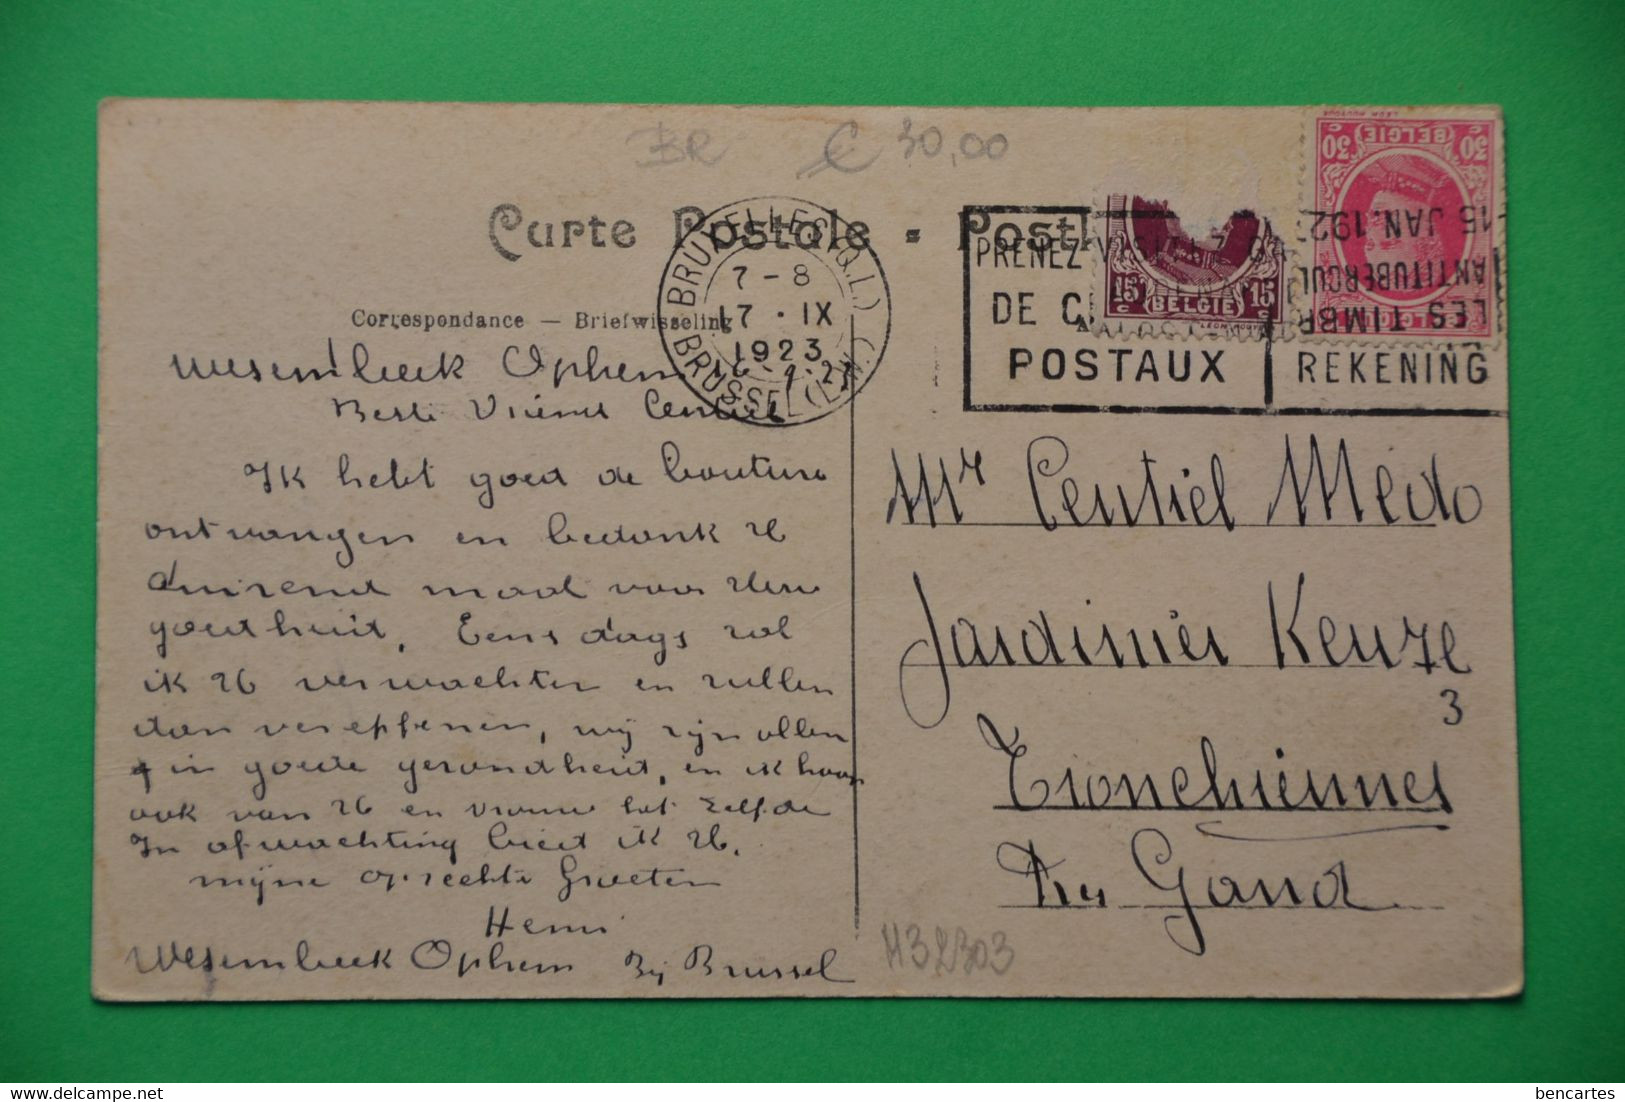 BR € 30,00
Carte Postale - Postk
Correspondance — Briefwisseling
BRUXELLES (Q.L.)
7-8
17 · IX
1923
BRUSSEL (L.W.)
PRENEZ
DE C
POSTAUX
REKENING
15 BELGIE 15
30 BELGIE 30
15 JAN. 192
ANTITUBERCUL
LES TIMBR
Wesembeek Ophem
Beste Vriend Centiel
Ik hebt goed de bouture
ontvangen en bedank U
duizend maal voor Uwe
goedheid. Eens dags zal
ik U verwachten en zullen
dan vereffenen, wij zijn allen
in goede gezondheid, en ik hoop
ook van U en vrouw het zelfde
In afwachting bied ik U.
mijne oprechte Groeten
Henri
Wesembeek Ophem Bij Brussel
Mr Centiel Medo
Jardinier Keuze
3
Tronchiennes
Gand
H32303
bencartes